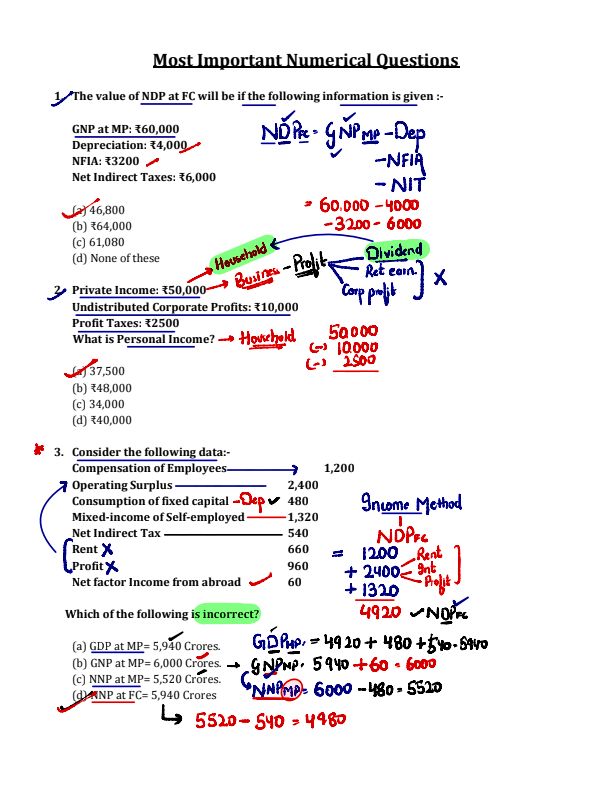 Most Important Numerical Questions
1. The value of NDP at FC will be if the following information is given :-
GNP at MP: ₹60,000
Depreciation: ₹4,000
NFIA: ₹3200
Net Indirect Taxes: ₹6,000
NDPFC = GNPMP - Dep
- NFIA
- NIT
= 60.000 - 4000
- 3200 - 6000
(a) 46,800
(b) ₹64,000
(c) 61,080
(d) None of these
Household
Business - Profit
Dividend
Ret earn.
Corp profit
X
2. Private Income: ₹50,000
Undistributed Corporate Profits: ₹10,000
Profit Taxes: ₹2500
What is Personal Income? → Household
50000
(-) 10000
(-) 2500
(a) 37,500
(b) ₹48,000
(c) 34,000
(d) ₹40,000
* 3. Consider the following data:-
Compensation of Employees 1,200
Operating Surplus 2,400
Consumption of fixed capital - Dep ✓ 480
Mixed-income of Self-employed 1,320
Net Indirect Tax 540
Rent X 660
Profit X 960
Net factor Income from abroad 60
Income Method
NDPFC
= 1200
+ 2400
Rent
Int
Profit
+ 1320
4920 ✓ NDPFC
Which of the following is incorrect?
(a) GDP at MP= 5,940 Crores.
GDPMP. = 4920 + 480 + 540 = 5940
(b) GNP at MP= 6,000 Crores. → GNPMP. 5940 + 60 = 6000
(c) NNP at MP= 5,520 Crores.
NNPMP = 6000 - 480 = 5520
(d) NNP at FC= 5,940 Crores
→ 5520 - 540 = 4980